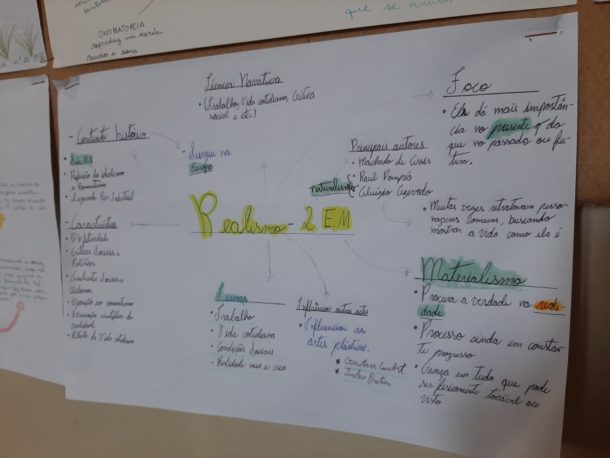 ONOMATOPEIA
que se
Técnica Narrativa
• Trabalho, Vida cotidiana, Crítica
social e etc.)
Foco
• Ela dá mais importân-
cia no presente q do
que no passado ou fu-
turo.
• Muitas vezes retratavam perso-
nagens comuns, buscando
mostrar a vida como ela é
- Contexto histórico
• Séc. XIX
• Rejeição do idealismo
e Romantismo
• Segunda Rev. Industrial
- Surgiu na
Europa
Principais autores
• Machado de Assis
• Raul Pompéia
• Aluízio Azevedo
naturalismo
Realismo - 2 EM
- Características
• Objetividade
• Críticas Sociais e
Políticas
• Ambientes Sociais e
Urbanos
• Oposição ao romantismo
• Observação científica da
realidade
• Retrato da Vida cotidiana
Temas
• Trabalho
• Vida cotidiana
• Condições Sociais
• Realidade nua e crua
Influência outras artes
• Influenciou as
artes plásticas.
* Gustave Courbet
* Jules Breton
Materialismo
• Procura a verdade na reali
dade
• Processo ainda em constan-
te progresso
• Crença em tudo que pode
ser fisicamente tocável ou
visto